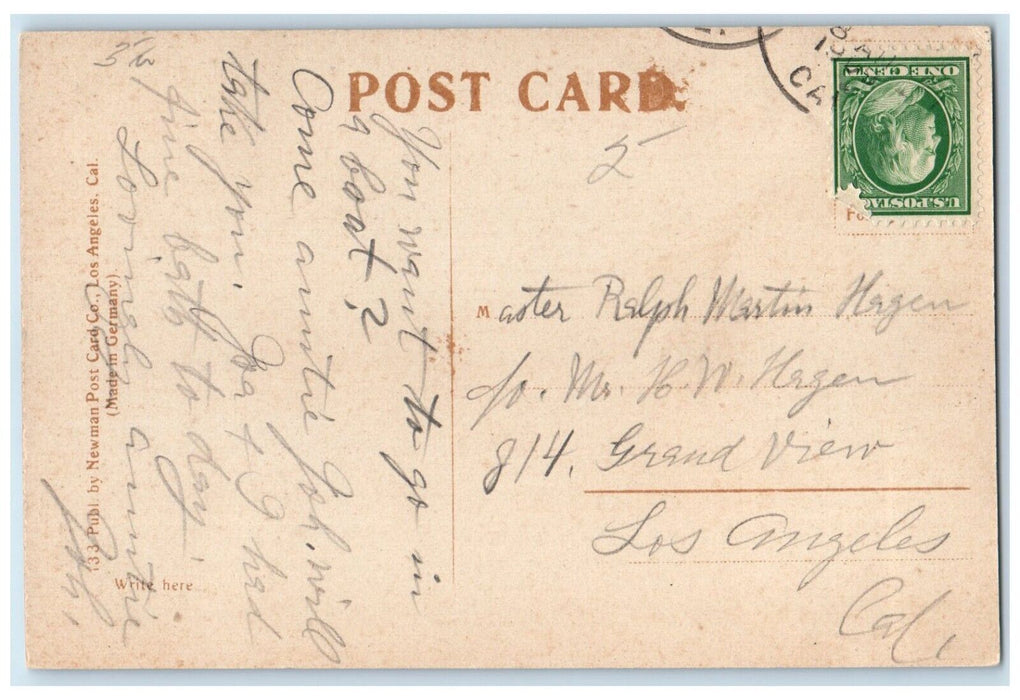 POST CARD.
5
You want to go in
a boat?
Come auntie Joh. will
take you. Ioa & I had
fine bath to day.
Lovingly auntie
Joh.
133 Publ. by Newman Post Card Co., Los Angeles. Cal.
(Made in Germany)
Write here
U.S. POSTAGE
ONE CENT
Master Ralph Martin Hagen
c/o. Mr. H W. Hagen
814. Grand View
Los Angeles
Cal.